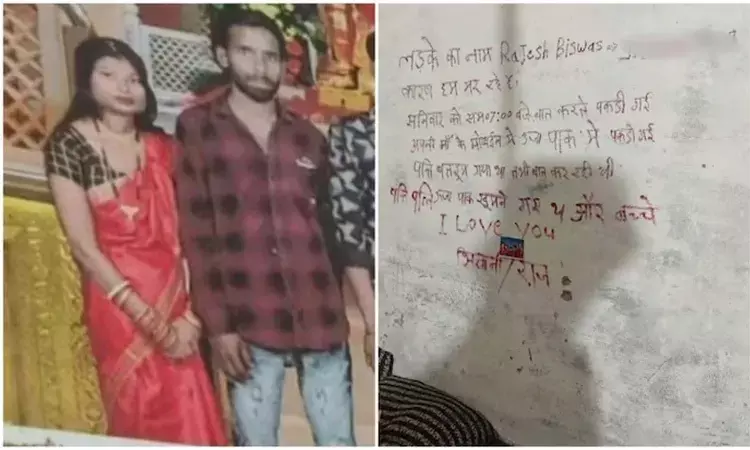 लड़के का नाम Rajesh Biswas
कारण हम मर रहे हैं।
शनिवार को साम 07:00 बजे बात करते पकड़ी गई
अपनी माँ के मोबाईल से ऊर्जा पार्क में पकड़ी गई
पति गया था तभी बात कर रही थी
पति पत्नि ऊर्जा पार्क घुमने गए थे और बच्चे
I Love You
राज